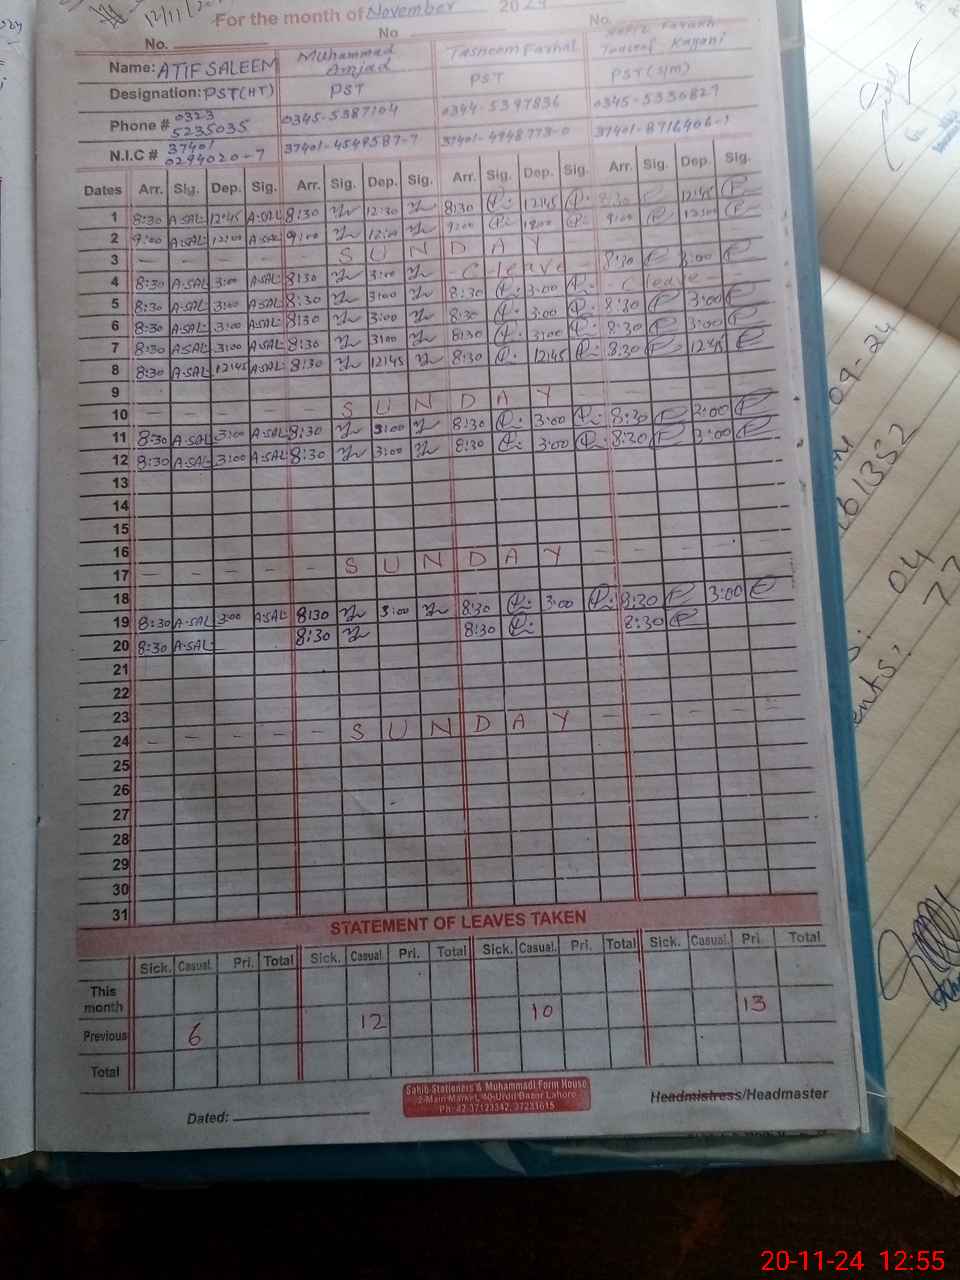 12/11/20
For the month of November 2024
No. No No.
Name: ATIF SALEEM Muhammad Amjad Tasneem Farhat
Designation: PST(HT) PST PST PST(S/M)
Phone # 0323 5235035 0345-5387104 0344-5397836 0345-5330827
N.I.C # 37401 0294020-7 37401-4549587-7 37401-4948773-0
Dates Arr. Sig. Dep. Sig. Arr. Sig. Dep. Sig. Arr. Sig. Dep. Sig. Arr. Sig. Dep. Sig.
1 8:30 A.SAL 12:45 A.SAL 8:30 12:30 8:30 12:45 8:30 12:45
2 9:00 A.SAL 12:00 A.SAL 9:00 12:00 9:00 9:00 12:00
3 S U N D A Y
4 8:30 A.SAL 3:00 A.SAL 8:30 3:00 - C leave - 8:30 3:00
5 8:30 A.SAL 3:00 A.SAL 8:30 3:00 8:30 3:00 - C leave -
6 8:30 A.SAL 3:00 A.SAL 8:30 3:00 8:30 3:00 8:30 3:00
7 8:30 A.SAL 3:00 A.SAL 8:30 3:00 8:30 3:00 8:30 3:00
8 8:30 A.SAL 12:45 A.SAL 8:30 12:45 8:30 12:45 8:30 12:45
9
10 - - - - - S U N D A Y - - - -
11 8:30 A.SAL 3:00 A.SAL 8:30 3:00 8:30 3:00 8:30 3:00
12 8:30 A.SAL 3:00 A.SAL 8:30 3:00 8:30 3:00 8:30 3:00
13
14
15
16
17 - - - - - S U N D A Y - - - - -
18
19 8:30 A.SAL 3:00 A.SAL 8:30 3:00 8:30 3:00 8:30 3:00
20 8:30 A.SAL 8:30 8:30 8:30
21
22
23
24 - - - - - S U N D A Y - - - - -
25
26
27
28
29
30
31
STATEMENT OF LEAVES TAKEN
Sick. Casual Pri. Total Sick. Casual Pri. Total Sick. Casual. Pri. Total Sick. Casual. Pri. Total
This month
Previous 6 12 10 13
Total
Sahib Stationers & Muhammadi Form House
2-Main Market, 40-Urdu Bazar Lahore
Ph: 42-37123342, 37233615
Dated: Headmistress/Headmaster
09-24
61352
04
ents:
20-11-24 12:55